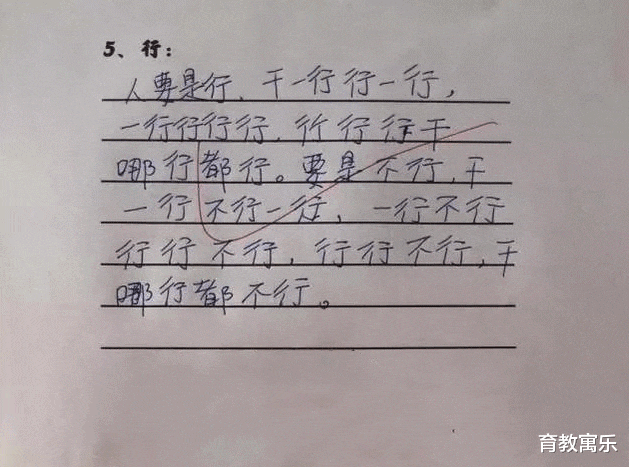 5、行：
人要是行，干一行行一行，
一行行行行，行行行干
哪行都行。要是不行，干
一行不行一行，一行不行
行行不行，行行不行，干
哪行都不行。
育教寓乐